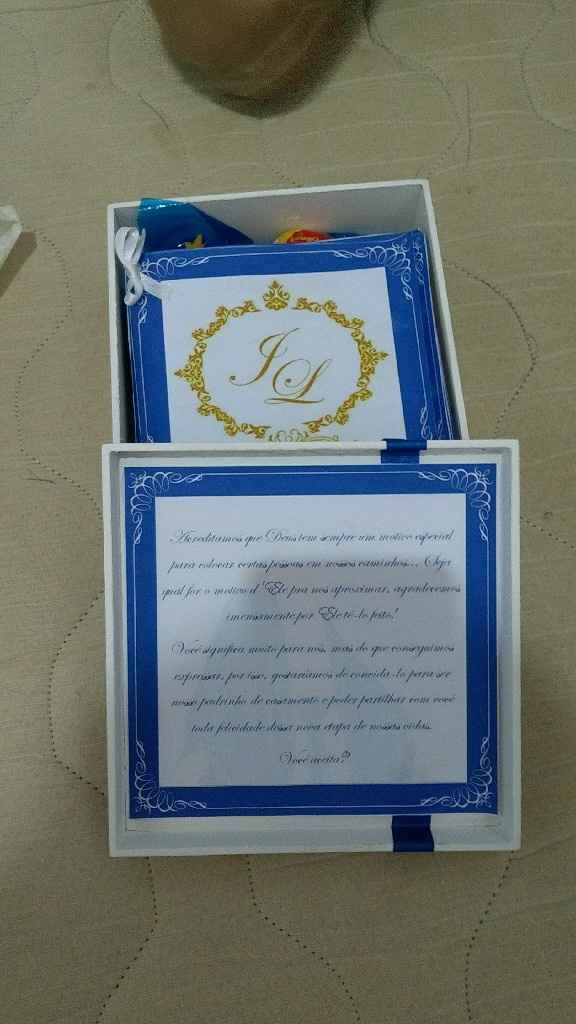 J L
Acreditamos que Deus tem sempre um motivo especial
para colocar certas pessoas em nossos caminhos... Seja
qual for o motivo d'Ele pra nos aproximar, agradecemos
imensamente por Ele tê-lo feito!
Você significa muito para nós, mas do que conseguimos
expressar, por isso, gostaríamos de convida-lo para ser
nosso padrinho de casamento e poder partilhar com você
toda felicidade dessa nova etapa de nossas vidas.
Você aceita?